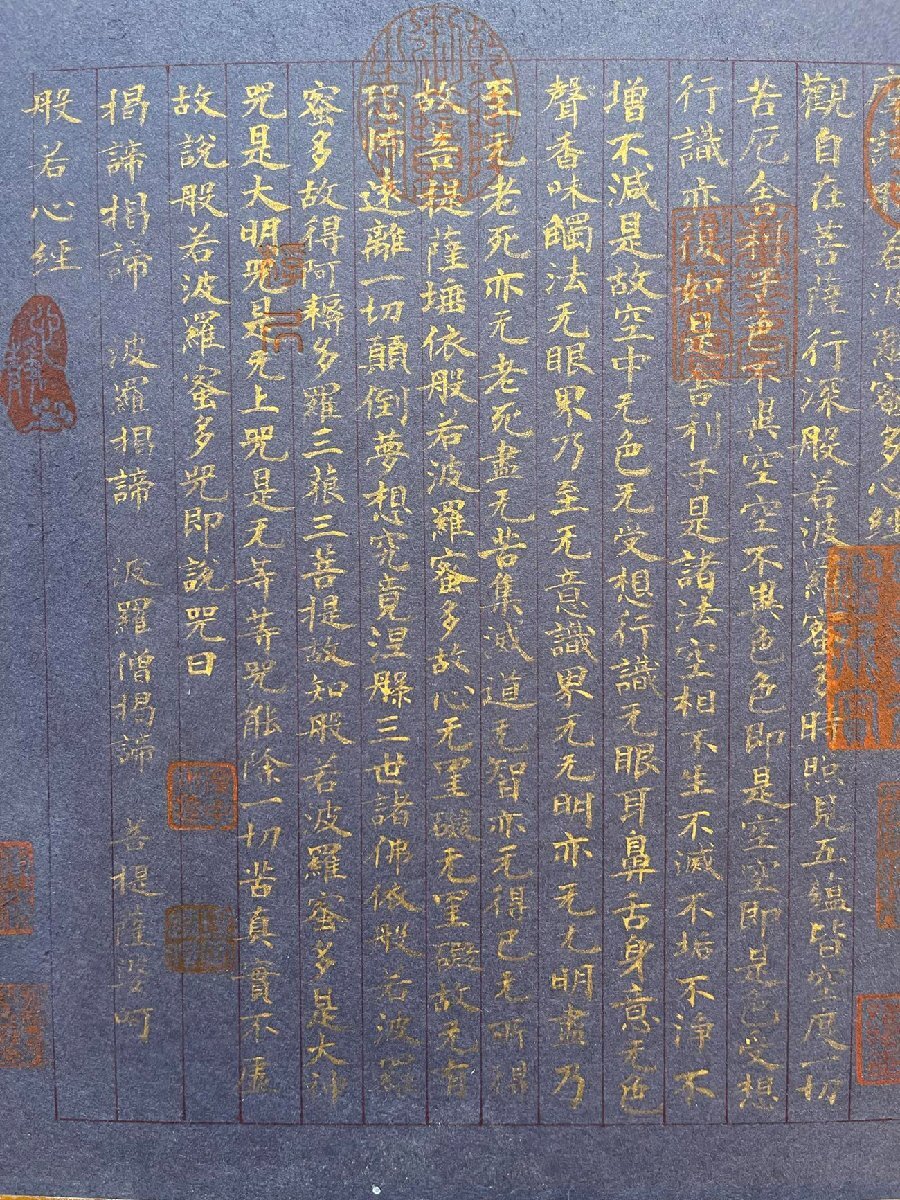 摩訶般若波羅蜜多心經
觀自在菩薩行深般若波羅蜜多時照見五蘊皆空度一切
苦厄舍利子色不異空空不異色色即是空空即是色受想
行識亦復如是舍利子是諸法空相不生不滅不垢不淨不
增不減是故空中无色无受想行識无眼耳鼻舌身意无色
聲香味觸法无眼界乃至无意識界无无明亦无无明盡乃
至无老死亦无老死盡无苦集滅道无智亦无得已无所得
故菩提薩埵依般若波羅蜜多故心无罣礙无罣礙故无有
恐怖遠離一切顛倒夢想究竟涅槃三世諸佛依般若波羅
蜜多故得阿耨多羅三藐三菩提故知般若波羅蜜多是大神
咒是大明咒是无上咒是无等等咒能除一切苦真實不虛
故說般若波羅蜜多咒即說咒曰
揭諦揭諦 波羅揭諦 波羅僧揭諦 菩提薩婆呵
般若心經